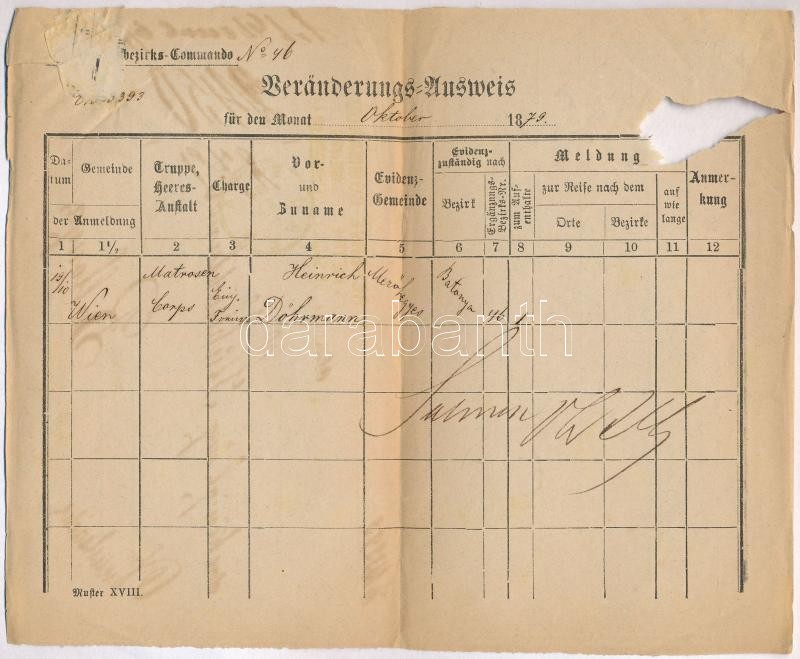 bezirks-Commando No 46
393
Veränderungs-Ausweis
für den Monat Oktober 1879.
Da-
tum
Gemeinde
der Anmeldung
Truppe,
Heeres-
Anstalt
Charge
Vor-
und
Zuname
Evidenz-
Gemeinde
Evidenz-
zuständig nach
Bezirk
Ergänzungs-
Bezirks-Nr.
Meldung
zum Auf-
enthalte
zur Reise nach dem
Orte
Bezirke
auf
wie
lange
Anmer-
kung
1 1½ 2 3 4 5 6 7 8 9 10 11 12
13/10 Matrosen Heinrich Mező Batonya
Wien Corps Einj. Döhrmann hegyes 46 1
Freiw.
darabanth
Muster XVIII.